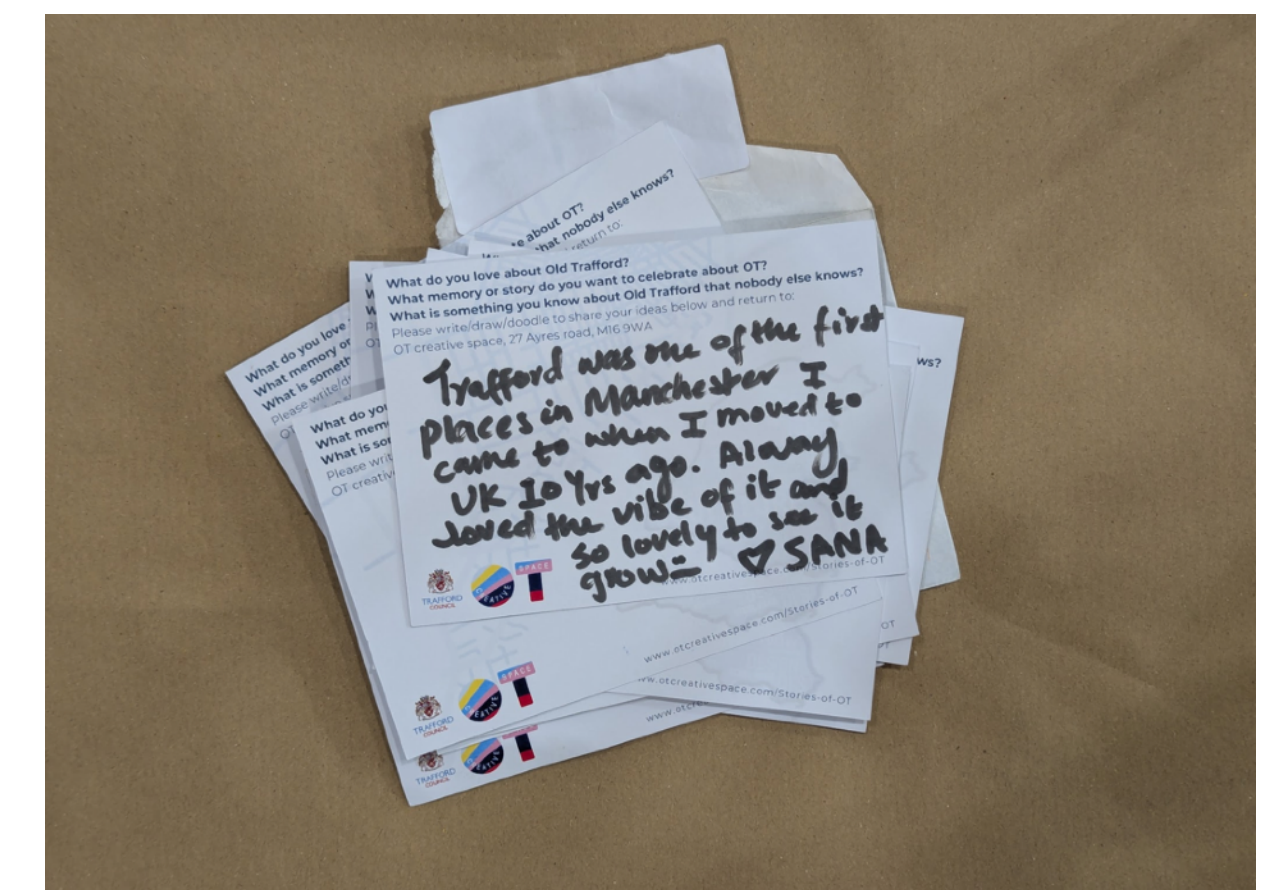 What do you love about Old Trafford?
What memory or story do you want to celebrate about OT?
What is something you know about Old Trafford that nobody else knows?
Please write/draw/doodle to share your ideas below and return to:
OT creative space, 27 Ayres road, M16 9WA
Trafford was one of the first
places in Manchester I
came to when I moved to
UK 10 Yrs ago. Alway
loved the vibe of it and
so lovely to see it
grow
♡ SANA
www.otcreativespace.com/Stories-of-OT
TRAFFORD
COUNCIL
CREATIVE
SPACE
OT
about OT?
that nobody else knows?
return to:
What do you love
What memory or
What is someth
Please write/d
OT
What do you
What mem
What is so
Please writ
OT creativ
ws?
www.otcreativespace.com/Stories-of-OT
ww.otcreativespace.com/Stories-of-OT
www.otc
OT
TRAFFORD
COUNCIL
EATIVE
SPACE
T
TRAFFORD
COUNCIL
EATIVE
T